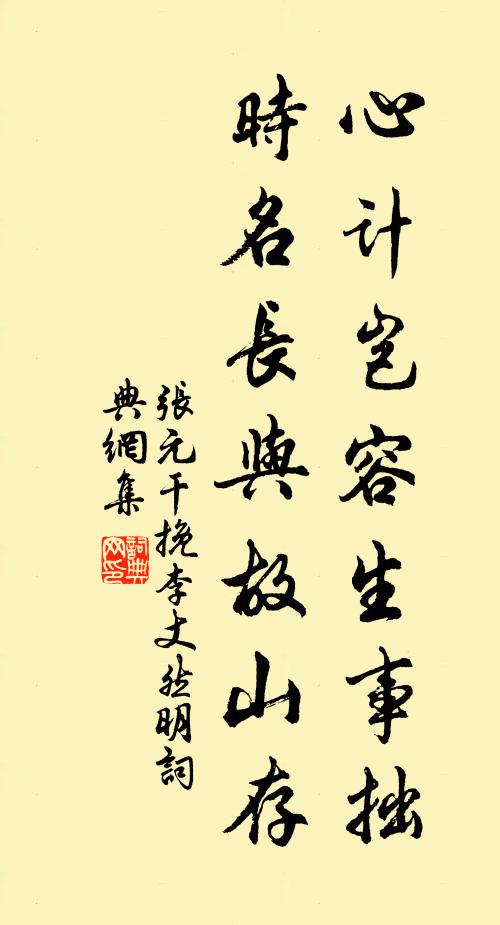 心计岂容生事拙
時名長與故山存
張元干挽李丈然明詞
典網集
詞典網印